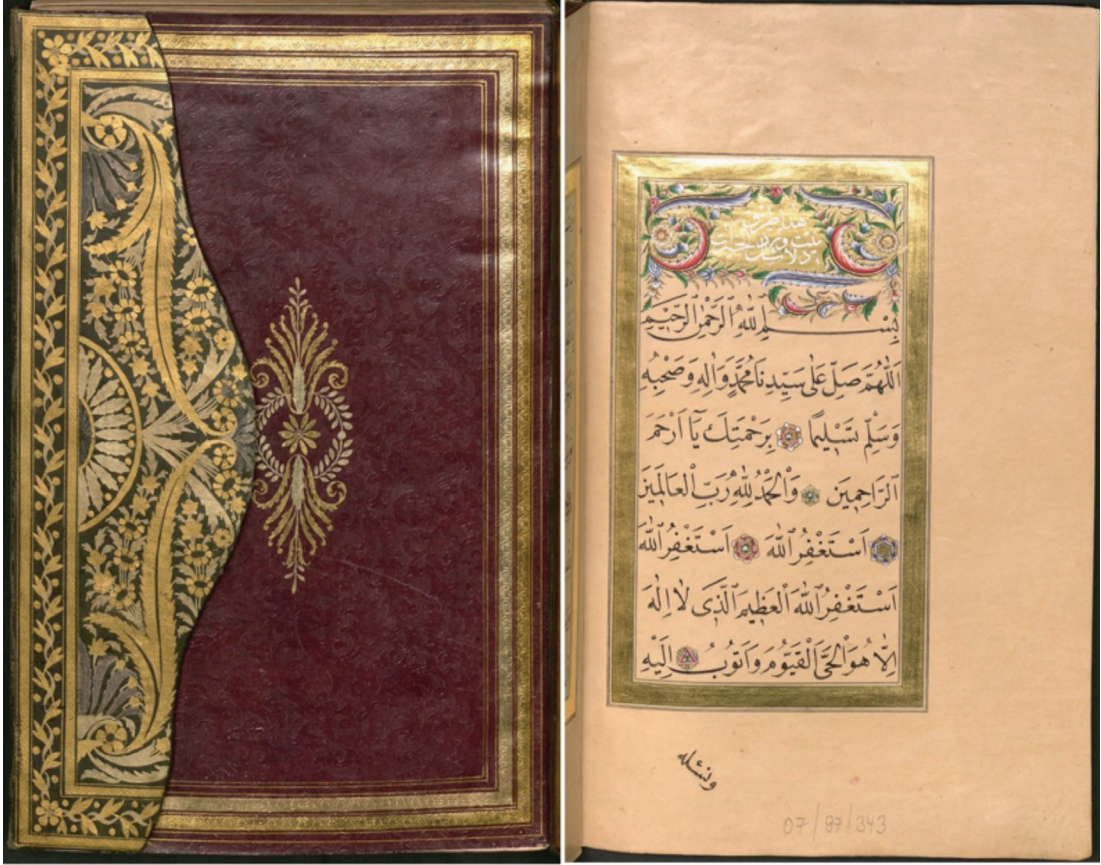 بِسْمِ اللّٰهِ الرَّحْمٰنِ الرَّحِيمِ
اَللّٰهُمَّ صَلِّ عَلٰى سَيِّدِنَا مُحَمَّدٍ وَاٰلِهِ وَصَحْبِهِ
وَسَلِّمْ تَسْلِيمًا بِرَحْمَتِكَ يَا اَرْحَمَ
الرَّاحِمِينَ وَالْحَمْدُ لِلّٰهِ رَبِّ الْعَالَمِينَ
اَسْتَغْفِرُ اللّٰهَ اَسْتَغْفِرُ اللّٰهَ
اَسْتَغْفِرُ اللّٰهَ الْعَظِيمَ الَّذِى لَا اِلٰهَ
اِلَّا هُوَ الْحَىَّ الْقَيُّومَ وَاَتُوبُ اِلَيْهِ
ونسئله
07/97/343